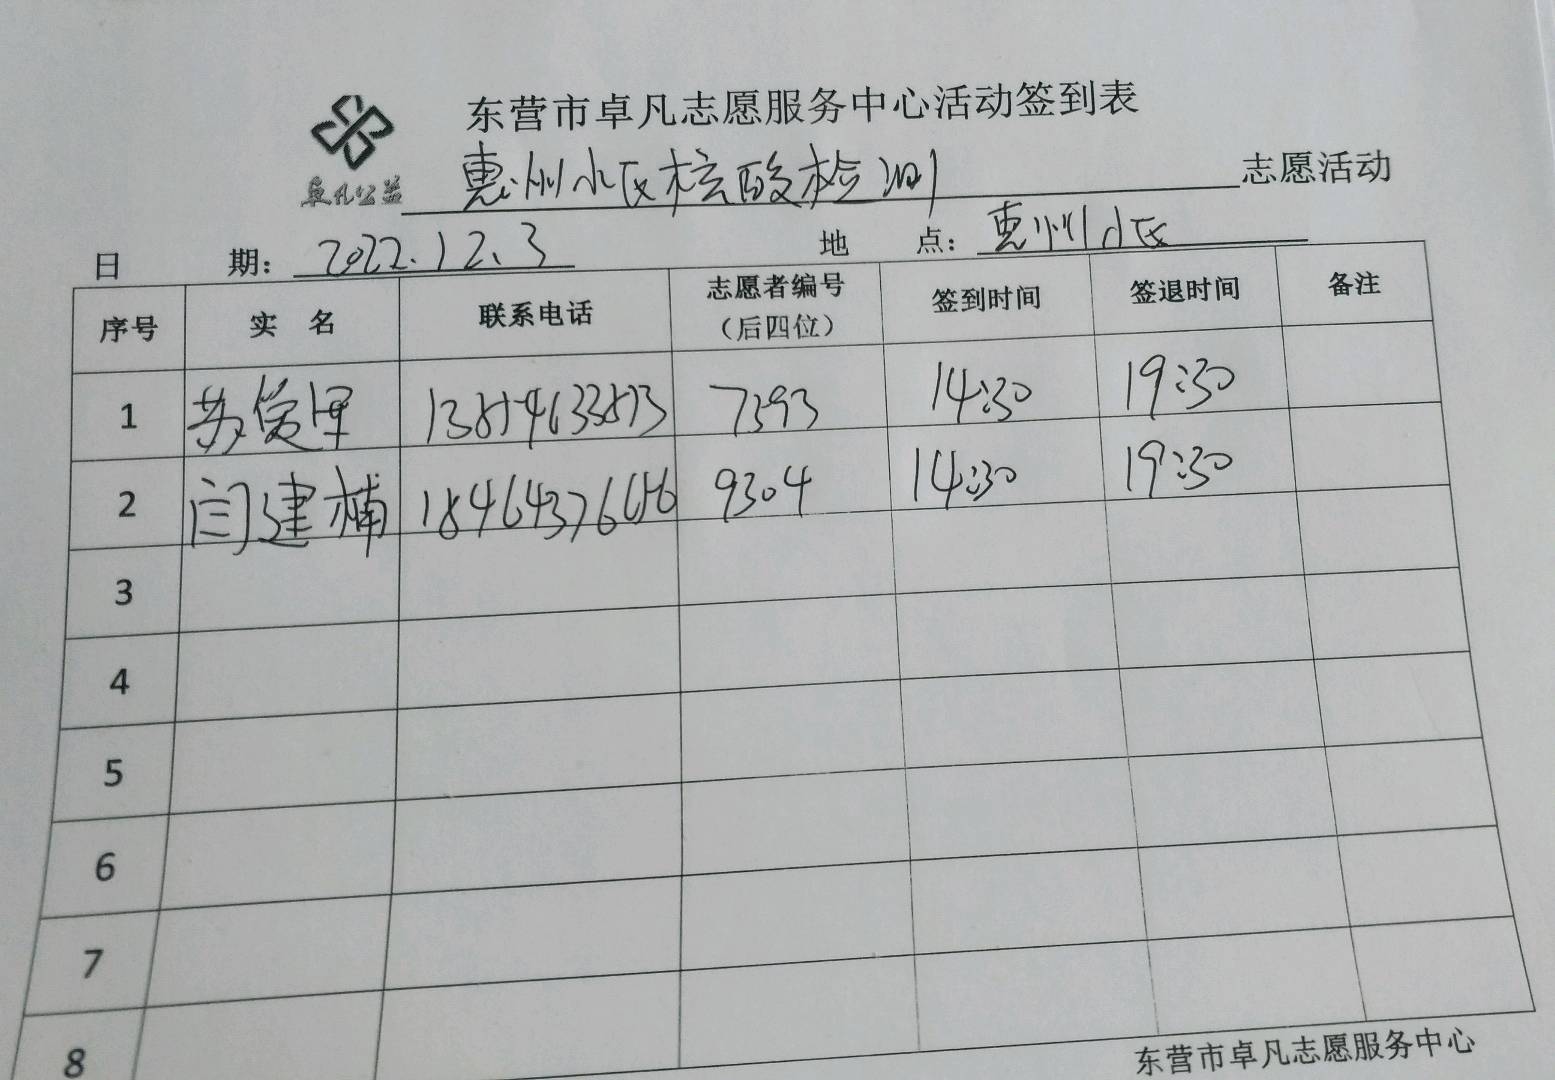 东营市卓凡志愿服务中心活动签到表
卓凡公益 惠州小区核酸检测 志愿活动
日 期: 2022.12.3 地 点: 惠州小区
序号 实 名 联系电话 志愿者编号（后四位） 签到时间 签退时间 备注
1 苏 7393 14:30 19:30
2 闫建楠 9304 14:30 19:30
3
4
5
6
7
8
东营市卓凡志愿服务中心